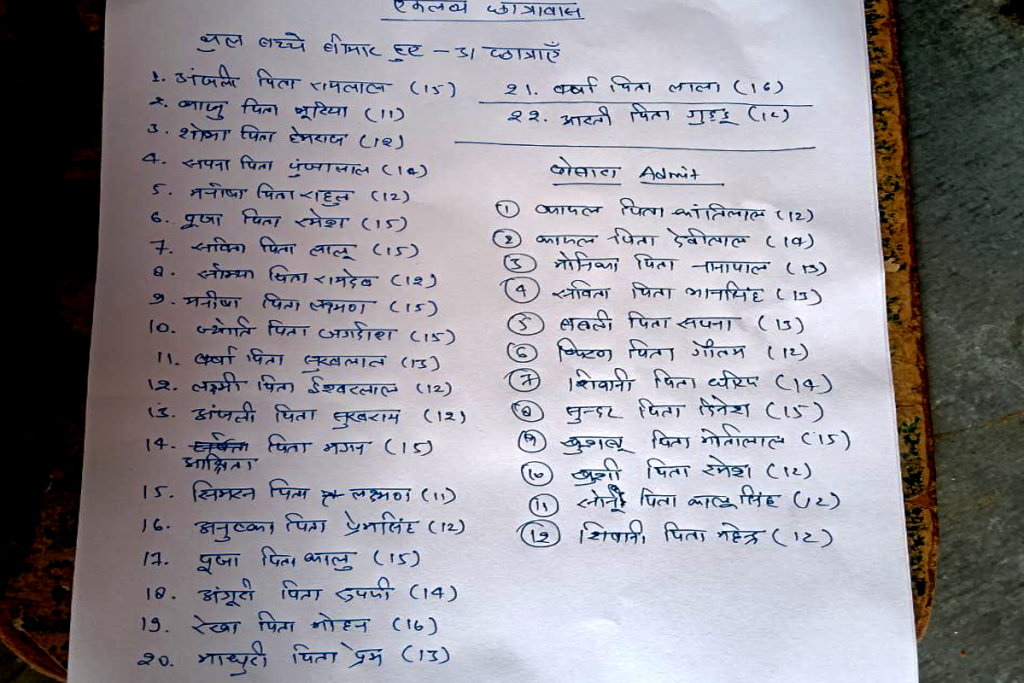 एकलव्य छात्रावास
कुल बच्चे बीमार हुए - 31 छात्राएँ
1. अंजली पिता रामलाल (15)
2. काजु पिता भूरिया (11)
3. शोभा पिता हेमराज (12)
4. सपना पिता पुंजालाल (14)
5. मनीषा पिता राहुल (12)
6. पूजा पिता रमेश (15)
7. सविता पिता लालू (15)
8. सौम्या पिता रामदेव (12)
9. मनीषा पिता लक्ष्मण (15)
10. ज्योति पिता जगदीश (15)
11. वर्षा पिता सुखलाल (13)
12. लक्ष्मी पिता ईश्वरलाल (12)
13. अंजली पिता सुखराम (12)
14. पिता मगन (15)
आक्षिता
15. सिमरन पिता लक्ष्मण (11)
16. अनुष्का पिता प्रेमसिंह (12)
17. पूजा पिता कालु (15)
18. अंगूरी पिता (14)
19. रेखा पिता मोहन (16)
20. माधुरी पिता प्रेम (13)
21. वर्षा पिता लाला (16)
22. आरती पिता गुड्डू (12)
दोबारा Admit
1 काजल पिता कांतिलाल (12)
2 काजल पिता देवीलाल (14)
3 मोनिका पिता (13)
4 सविता पिता भानसिंह (13)
5 बबली पिता सपना (13)
6 किरण पिता गौतम (12)
7 शिवानी पिता (14)
8 सुन्दर पिता दिनेश (15)
9 खुशबू पिता मोतीलाल (15)
10 खुशी पिता रमेश (12)
11 सोनू पिता कालूसिंह (12)
12 शिवानी पिता महेन्द्र (12)